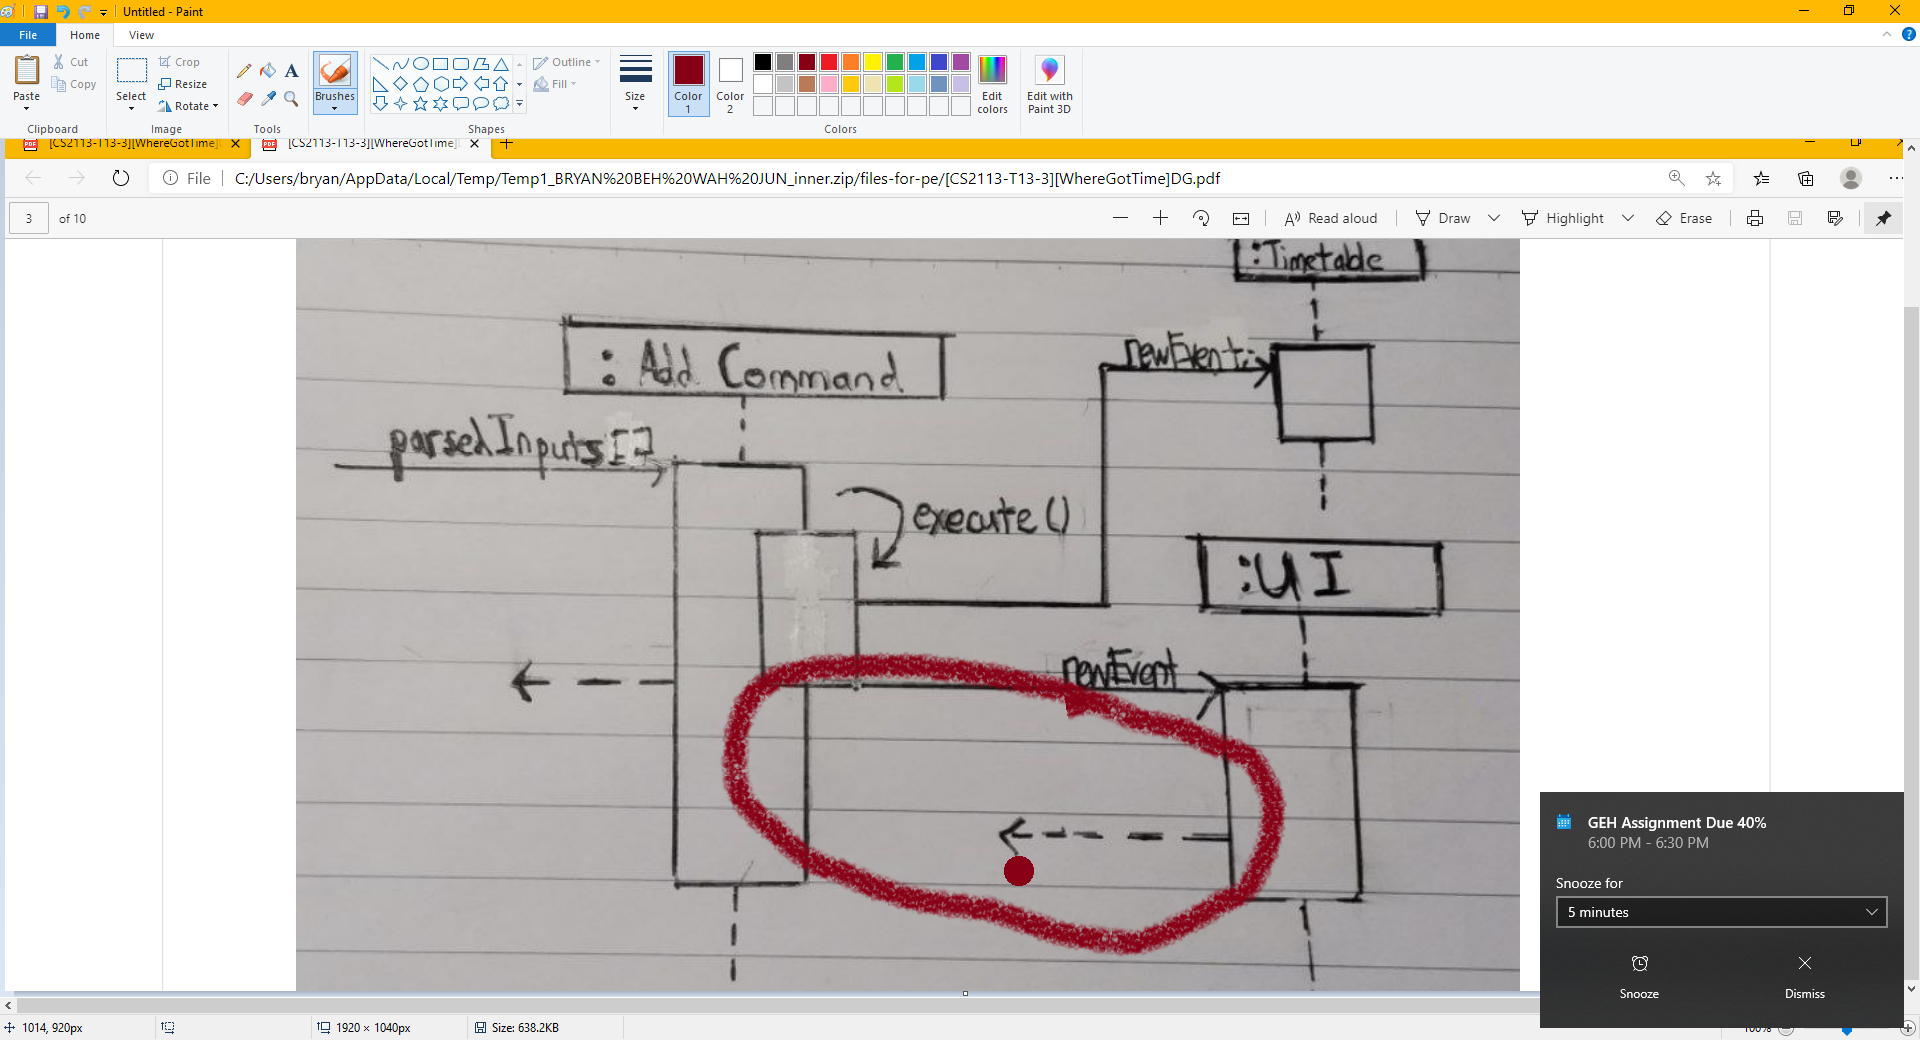 Untitled - Paint
File
Home
View
Paste
Cut
Copy
Clipboard
Select
Crop
Resize
Rotate
Image
A
Tools
Brushes
Shapes
Outline
Fill
Size
Color 1
Color 2
Colors
Edit colors
Edit with Paint 3D
[CS2113-T13-3][WhereGotTime]
[CS2113-T13-3][WhereGotTime]
File
C:/Users/bryan/AppData/Local/Temp/Temp1_BRYAN%20BEH%20WAH%20JUN_inner.zip/files-for-pe/[CS2113-T13-3][WhereGotTime]DG.pdf
3 of 10
Read aloud
Draw
Highlight
Erase
:Timetable
: Add Command
newEvent:
parsedInputs[]
execute()
:UI
newEvent
GEH Assignment Due 40%
6:00 PM - 6:30 PM
Snooze for
5 minutes
Snooze
Dismiss
1014, 920px
1920 × 1040px
Size: 638.2KB
100%